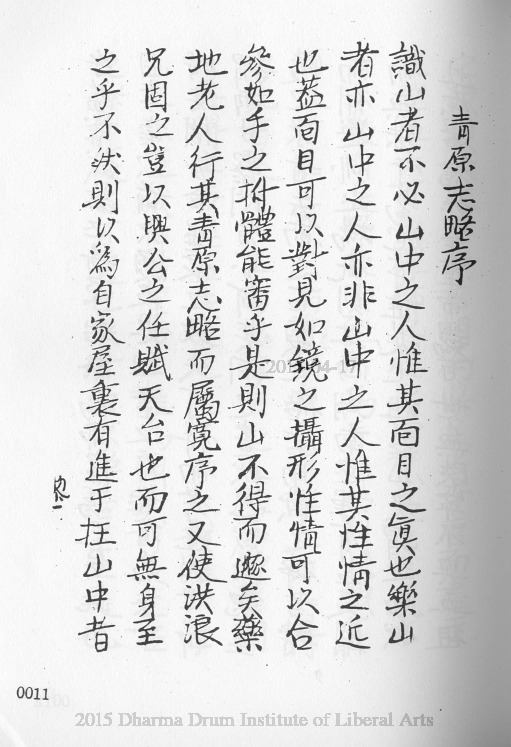 青原志略序
識山者不必山中之人惟其面目之眞也樂山
者亦山中之人亦非山中之人惟其性情之近
也葢面目可以對見如鏡之攝形性情可以合
參如手之拊體能審乎是則山不得而遯矣藥
地老人行其青原志略而屬寬序之又使洪浪
兄固之豈以興公之任賦天台也而可無身至
之乎不然則以為自家屋裏有進于在山中者
序一
0011
2015 Dharma Drum Institute of Liberal Arts